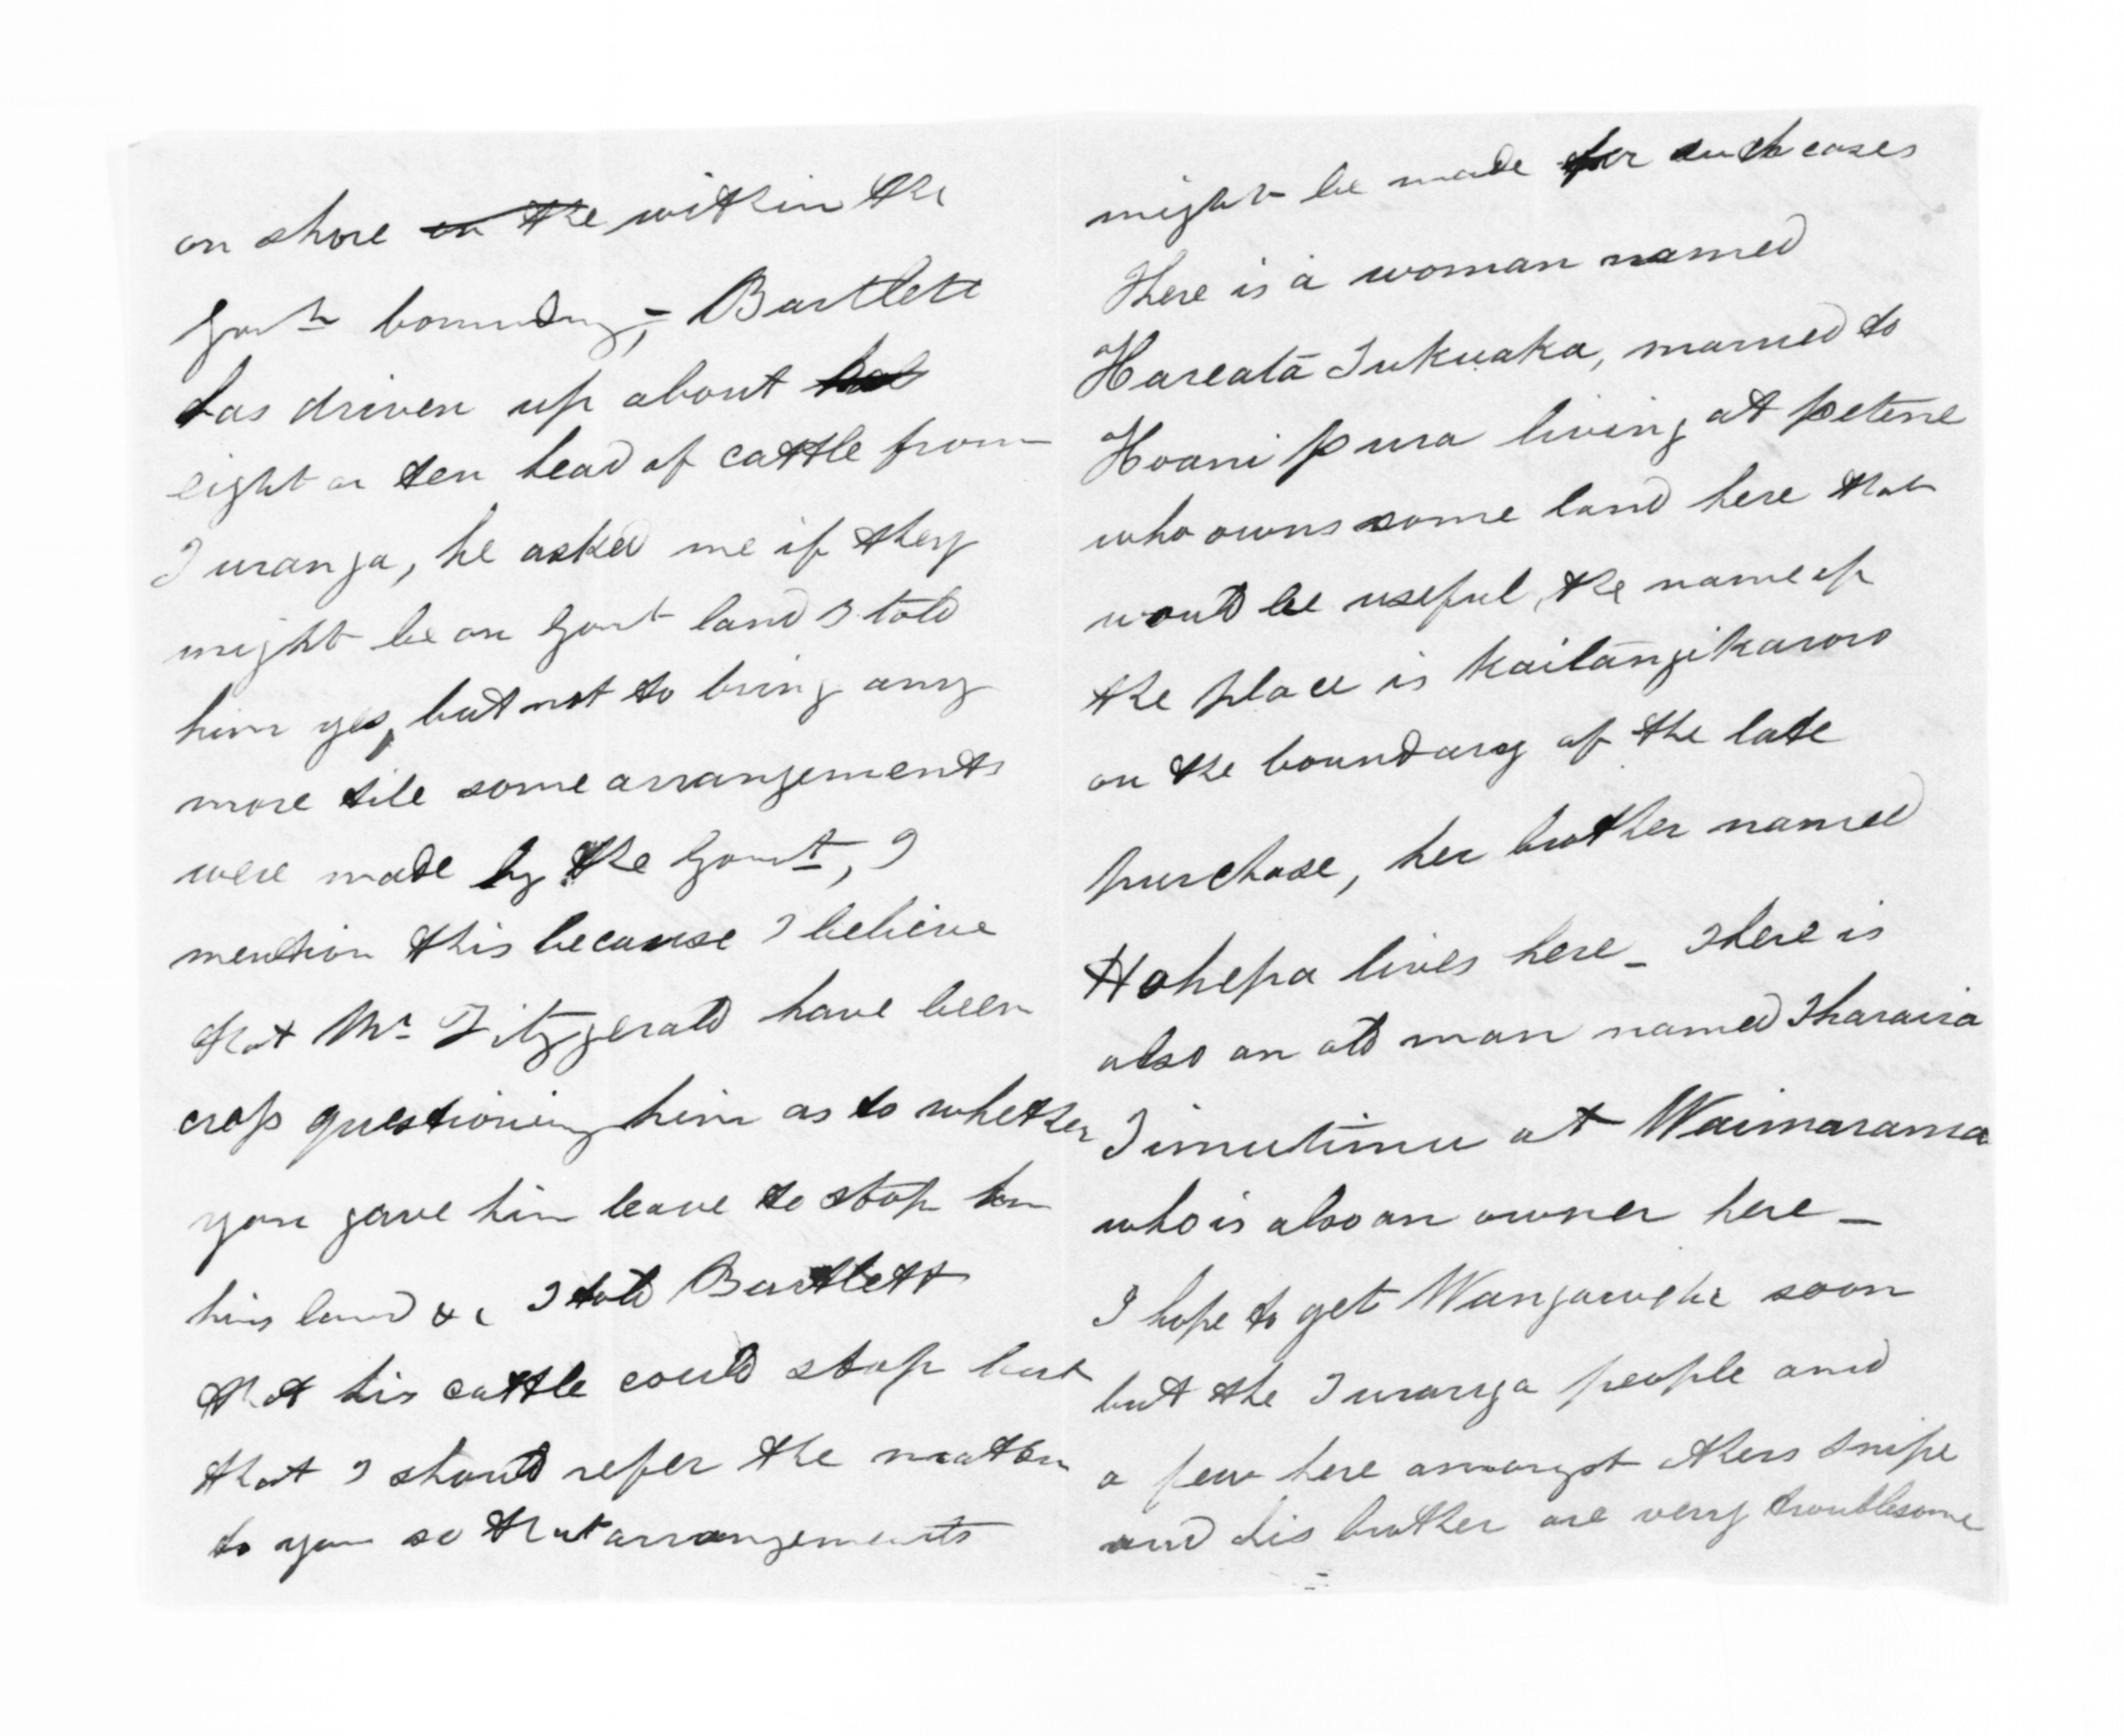 on shore on the within the
Govt boundary, - Bartlett
has driven up about
eight or ten head of cattle from
Turanga, he asked me if they
might be on Govt land I told
him yes, but not to bring any
more till some arrangements
were made by the Govt, I
mention this because I believe
that Mr Fitzgerald have been
cross questioning him as to whether
you gave him leave to stop on
his land &c I told Bartlett
that his cattle could stop but
that I should refer the matter
to you so that arrangements
might be made for such cases
There is a woman named
Hareata Tukuaka, married to
Hoani pura living at petene
who owns some land here that
would be useful, the name of
the place is Kaitangikaroro
on the boundary of the late
purchase, her brother named
Hohepa lives here _ There is
also an old man named Tharaira
Timutimu at Waimarama
who is also an owner here _
I hope to get Wangawehi soon
but the Turanga people and
a few here amongst others Snipe
and his brother are very troublesome